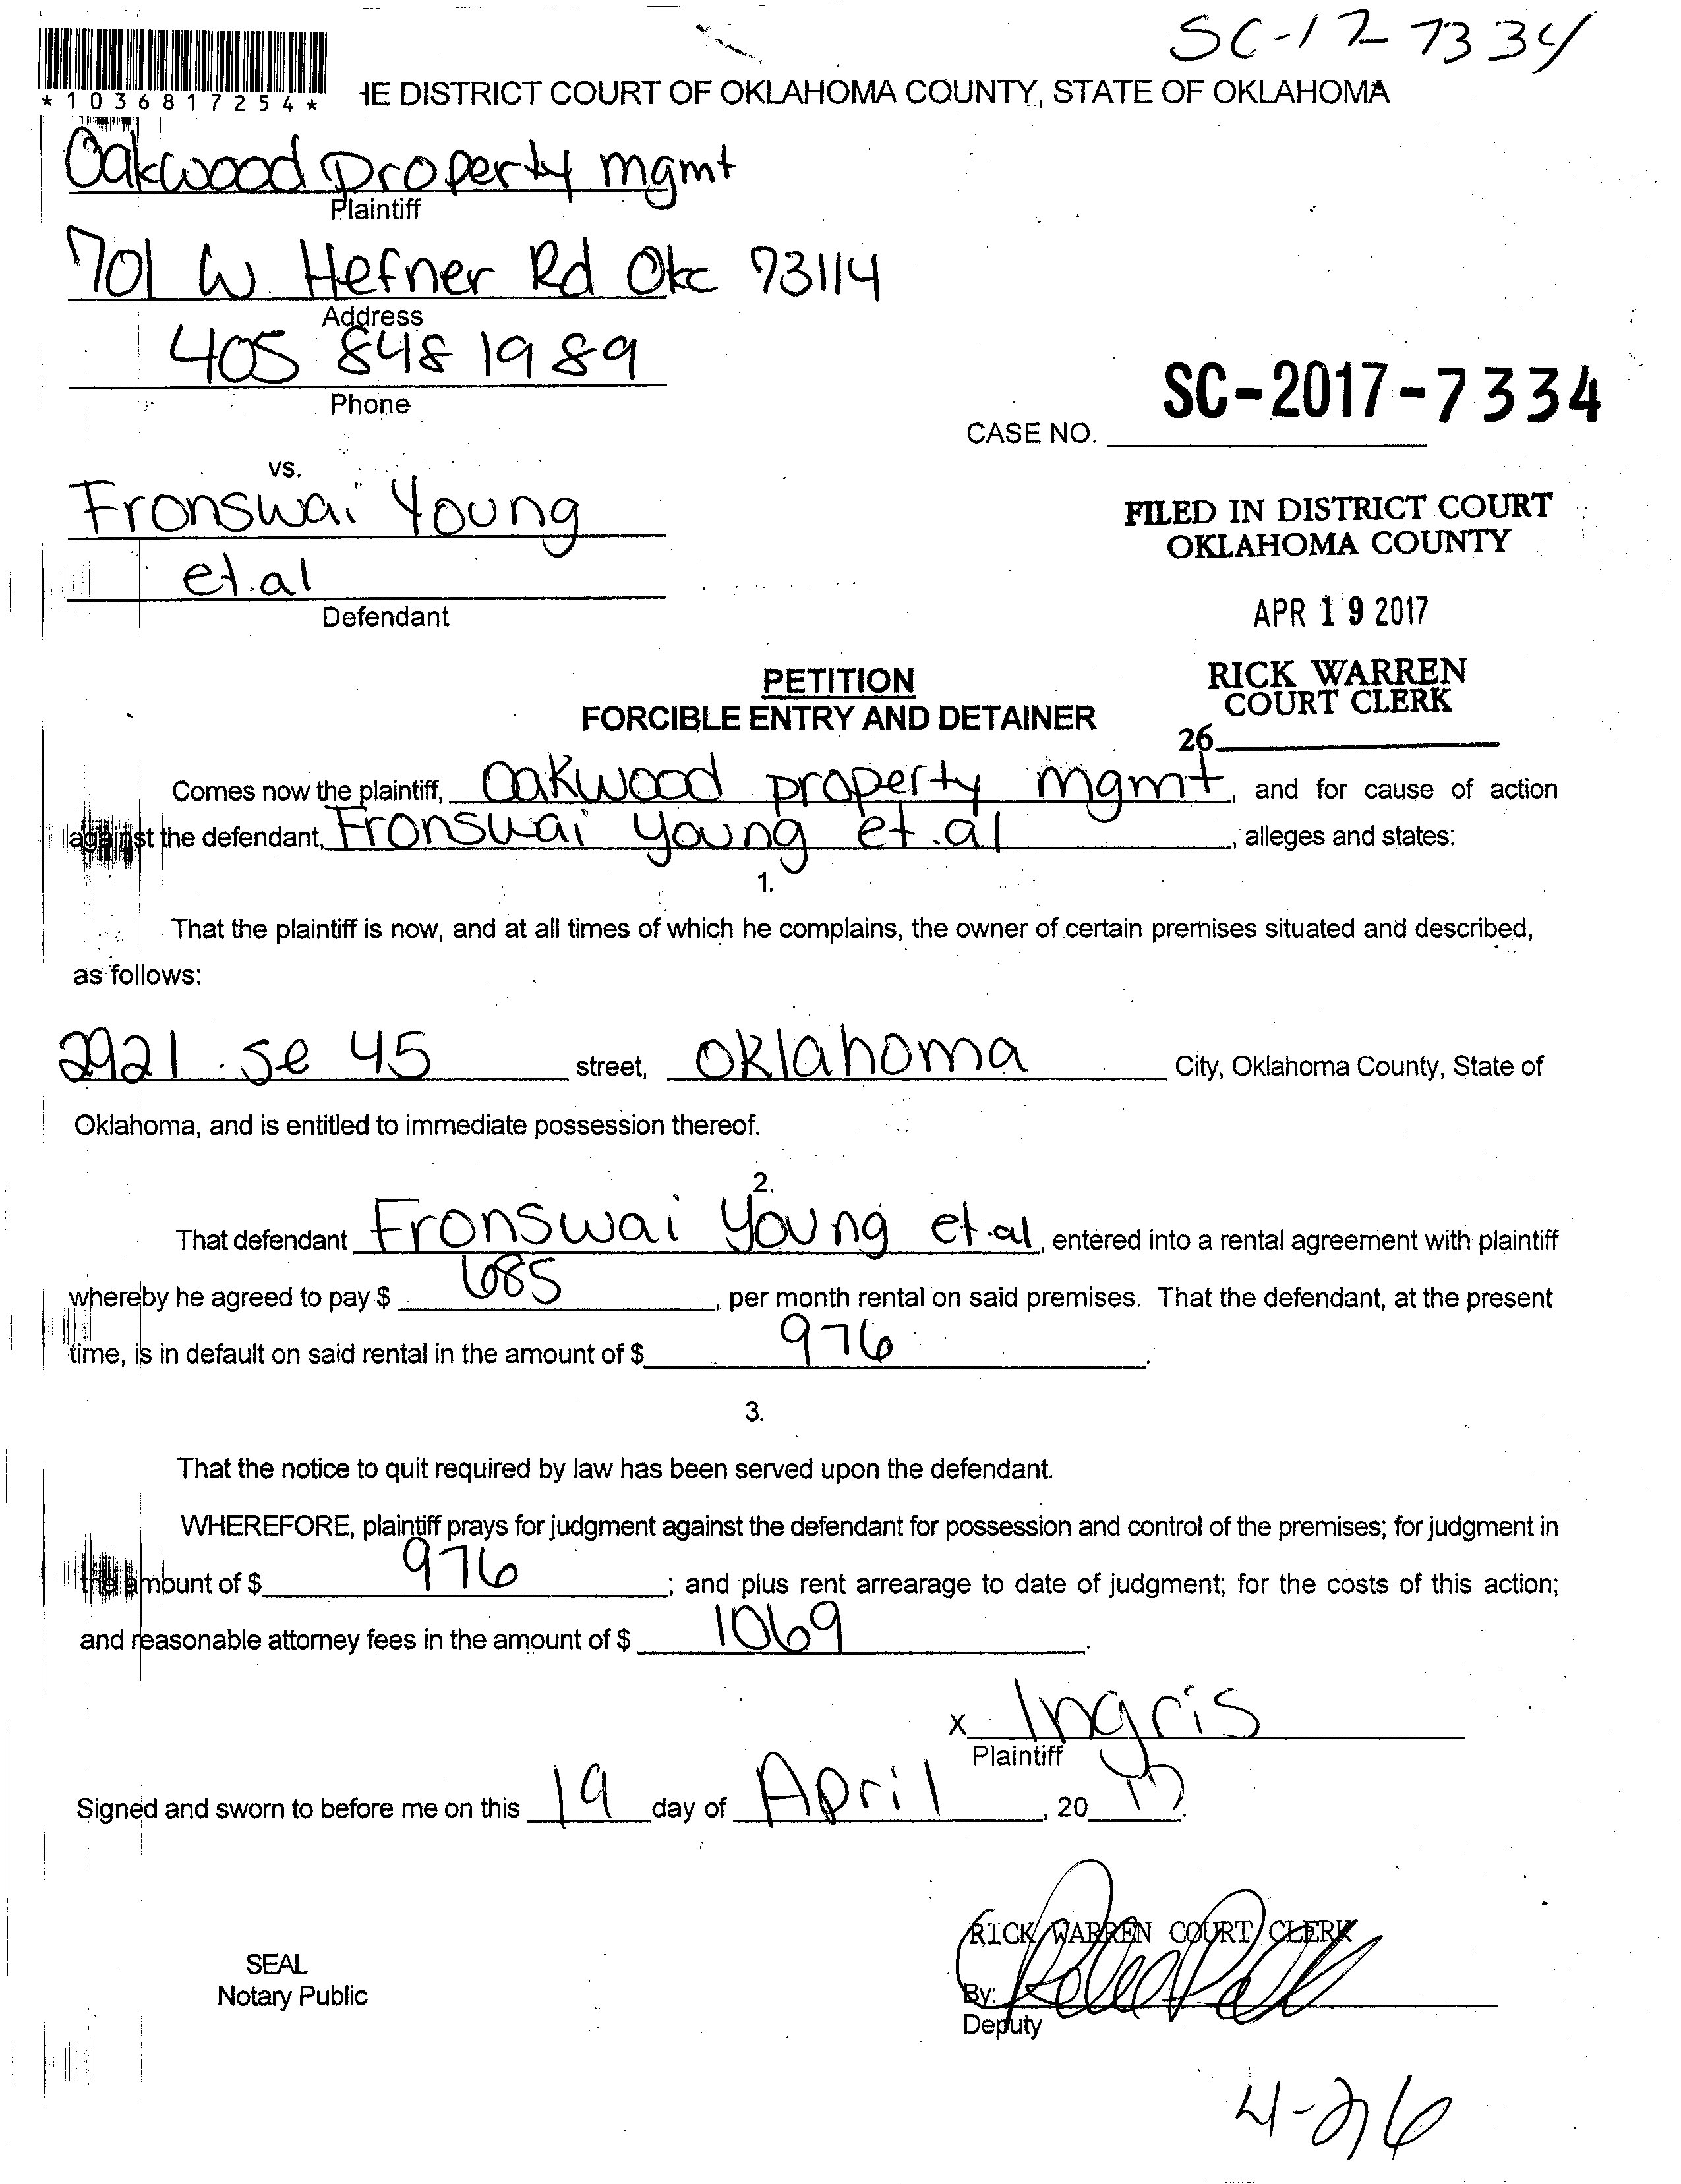 SC-17 7334
*1036817254*
HE DISTRICT COURT OF OKLAHOMA COUNTY, STATE OF OKLAHOMA
Oakwood Property mgmt
Plaintiff
701 W. Hefner Rd Okc 73114
Address
405 848 1989
Phone
SC-2017-7334
CASE NO.
vs.
Fronswai Young
et.al
Defendant
FILED IN DISTRICT COURT
OKLAHOMA COUNTY
APR 19 2017
RICK WARREN
COURT CLERK
26
PETITION
FORCIBLE ENTRY AND DETAINER
Comes now the plaintiff, Oakwood property mgmt, and for cause of action
against the defendant, Fronswai young et.al, alleges and states:
1.
That the plaintiff is now, and at all times of which he complains, the owner of certain premises situated and described,
as follows:
2921 se 45 street, oklahoma City, Oklahoma County, State of
Oklahoma, and is entitled to immediate possession thereof.
2.
That defendant Fronswai Young et.al, entered into a rental agreement with plaintiff
whereby he agreed to pay $ 685, per month rental on said premises. That the defendant, at the present
time, is in default on said rental in the amount of $ 976.
3.
That the notice to quit required by law has been served upon the defendant.
WHEREFORE, plaintiff prays for judgment against the defendant for possession and control of the premises; for judgment in
the amount of $ 976; and plus rent arrearage to date of judgment; for the costs of this action;
and reasonable attorney fees in the amount of $ 1069.
x Ingris
Plaintiff
Signed and sworn to before me on this 19 day of April, 20 17.
RICK WARREN COURT CLERK
SEAL
Notary Public
By:
Deputy
4-26